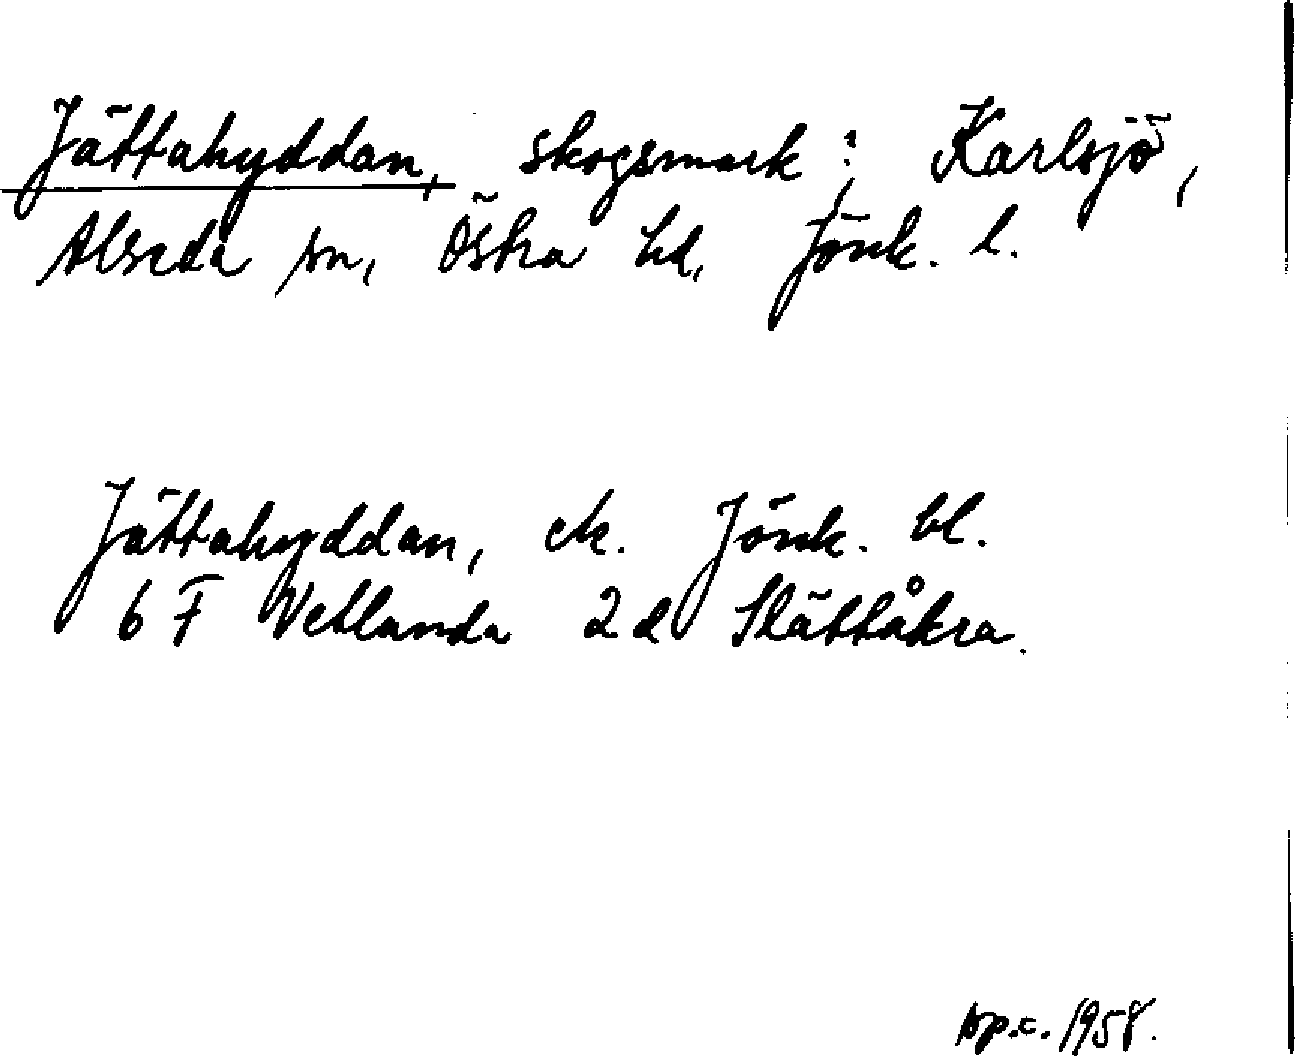 Jättahyddan, skogsmark; Karlsjö,
Alseda sn, Östra hd, Jönk. l.
Jättahyddan, ek. Jönk. bl.
6 F Vetlanda 2 d Slättåkra.
1958.